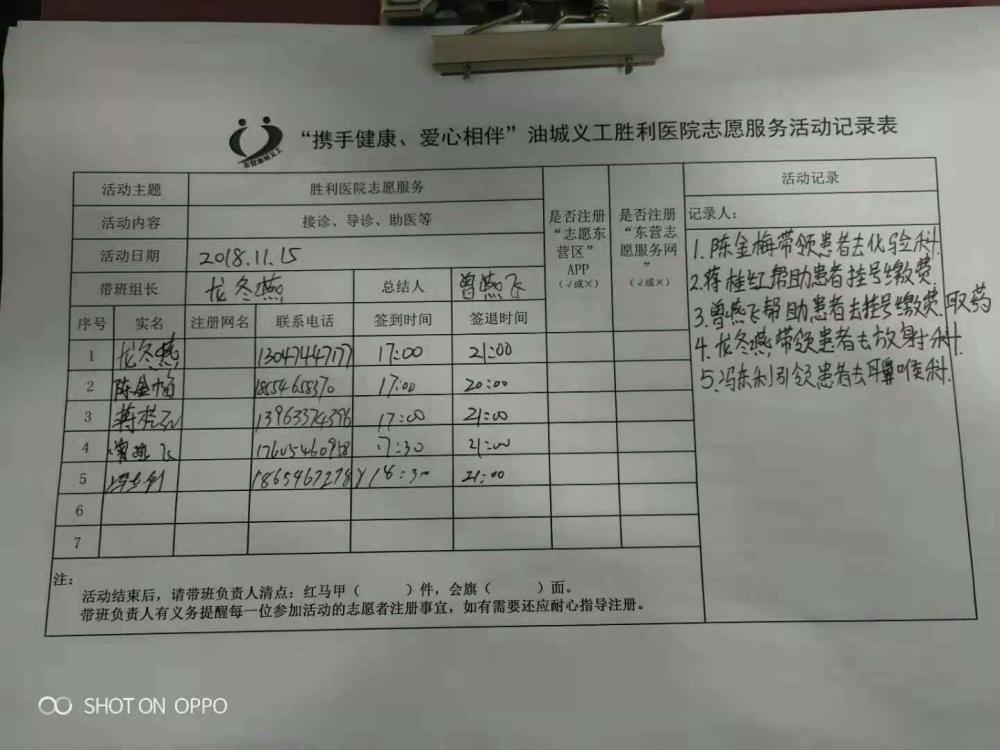 东营油城义工
“携手健康、爱心相伴”油城义工胜利医院志愿服务活动记录表
活动主题 胜利医院志愿服务
活动内容 接诊、导诊、助医等
活动日期 2018.11.15
带班组长 龙冬燕 总结人 曾燕飞
是否注册“志愿东营区”APP（√或×）
是否注册“东营志愿服务网”（√或×）
序号 实名 注册网名 联系电话 签到时间 签退时间
1 龙冬燕 13047447177 17:00 21:00
2 陈金梅 17:00 20:00
3 蒋桂红 13963374396 17:00 21:00
4 曾燕飞 17605460958 17:30 21:00
5 冯东利 18:30 21:00
6
7
活动记录
记录人：
1.陈金梅带领患者去化验科.
2.蒋桂红帮助患者挂号缴费.
3.曾燕飞帮助患者去挂号缴费.取药
4.龙冬燕带领患者去放射科.
5.冯东利引领患者去耳鼻喉科.
注：
活动结束后，请带班负责人清点：红马甲（ ）件，会旗（ ）面。
带班负责人有义务提醒每一位参加活动的志愿者注册事宜，如有需要还应耐心指导注册。
SHOT ON OPPO